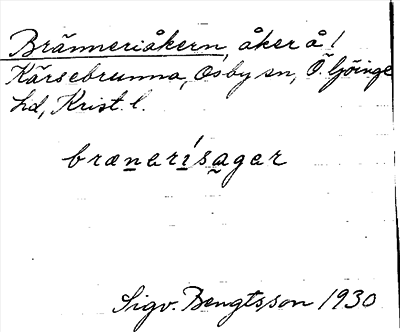 Bränneriåkern, åker å!
Kärsebrunna, Osby sn, Ö. Göinge
hd, Krist. l.
brænerísager
Sigv. Bengtsson 1930